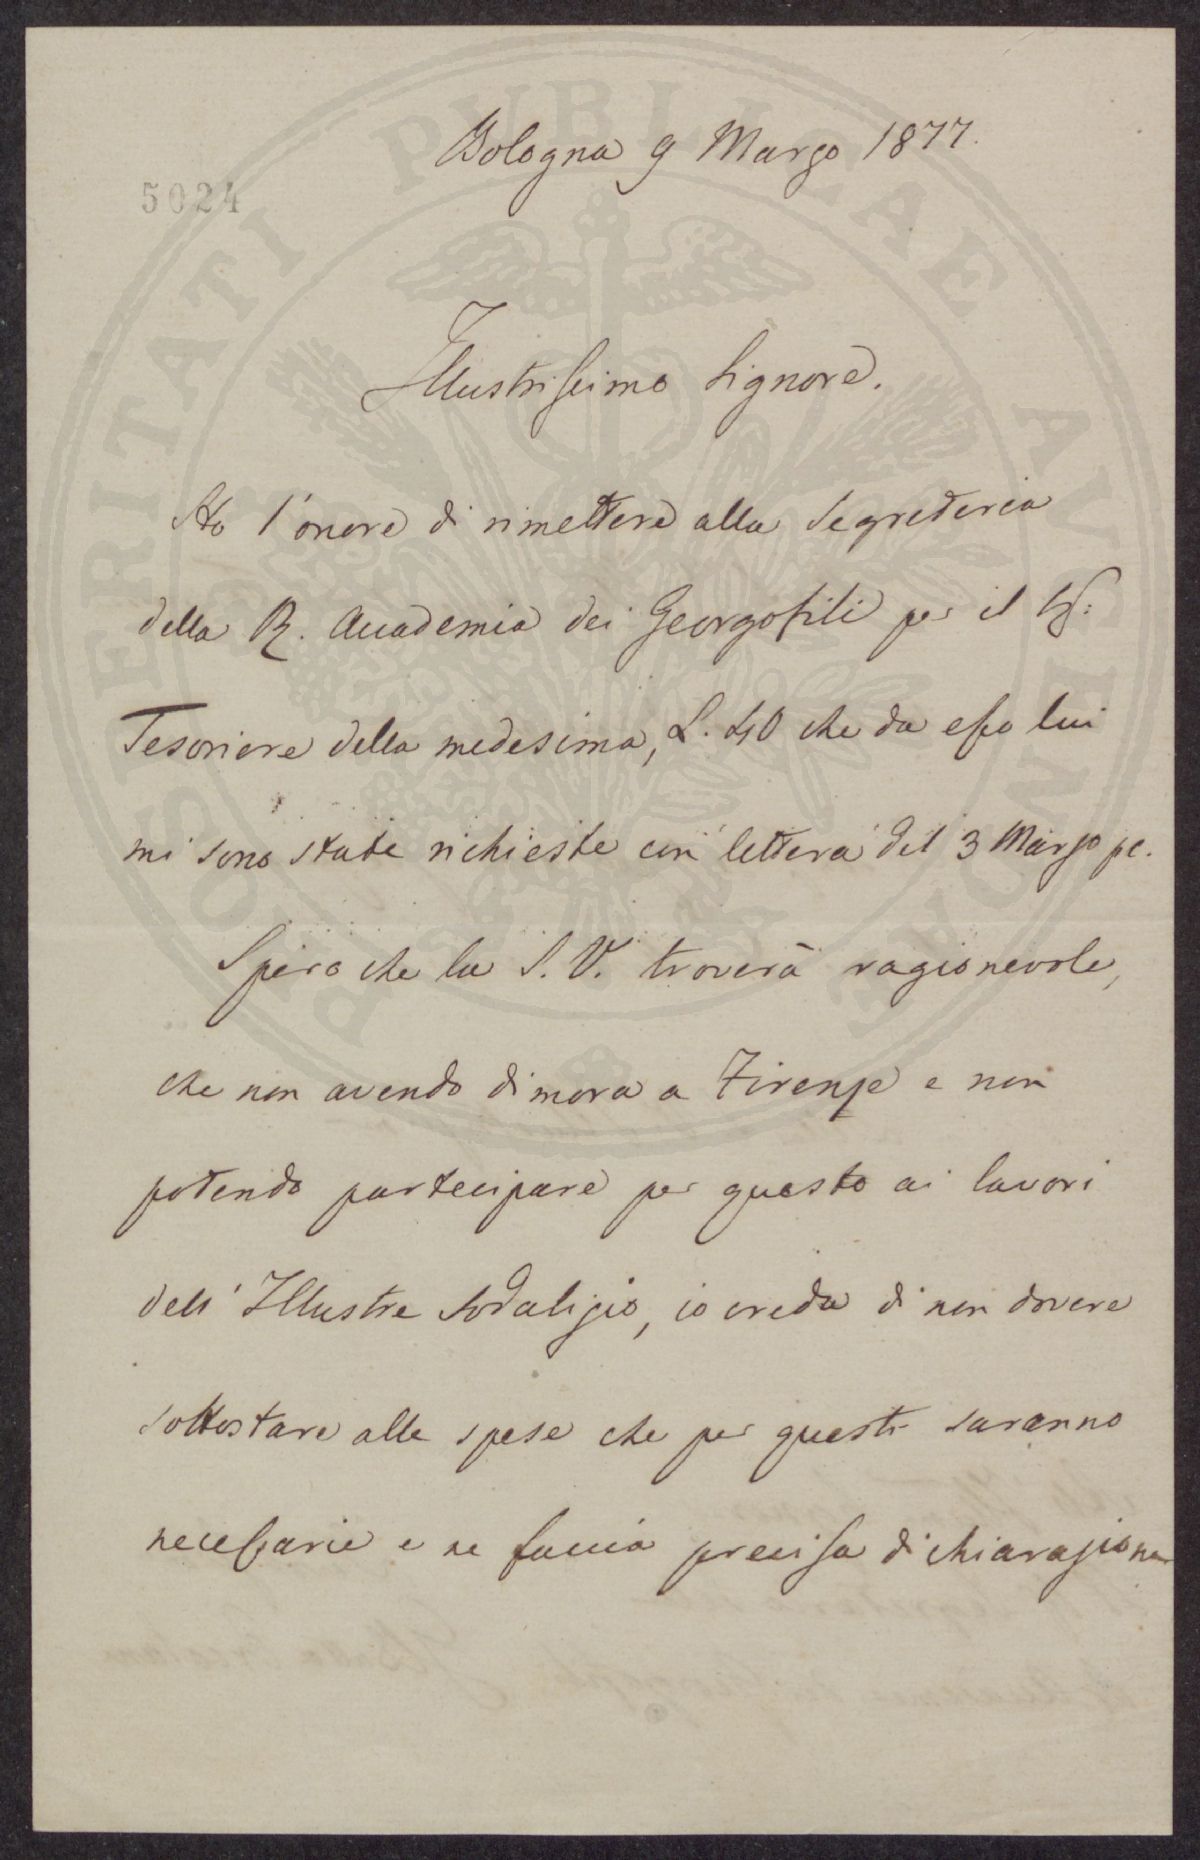 PROSPERITATI PUBLICAE AUGENDAE
5024
Bologna 9 Marzo 1877.
Illustrissimo Signore.
Ho l'onore di rimettere alla Segreteria
della R. Accademia dei Georgofili per il Sig:
Tesoriere della medesima, L. 40 che da esso lui
mi sono state richieste con lettera del 3 Marzo pc.
Spero che la S. V. troverà ragionevole,
che non avendo dimora a Firenze e non
potendo partecipare per questo ai lavori
dell'Illustre Sodalizio, io creda di non dovere
sottostare alle spese che per questi saranno
necessarie e ne faccia precisa dichiarazione